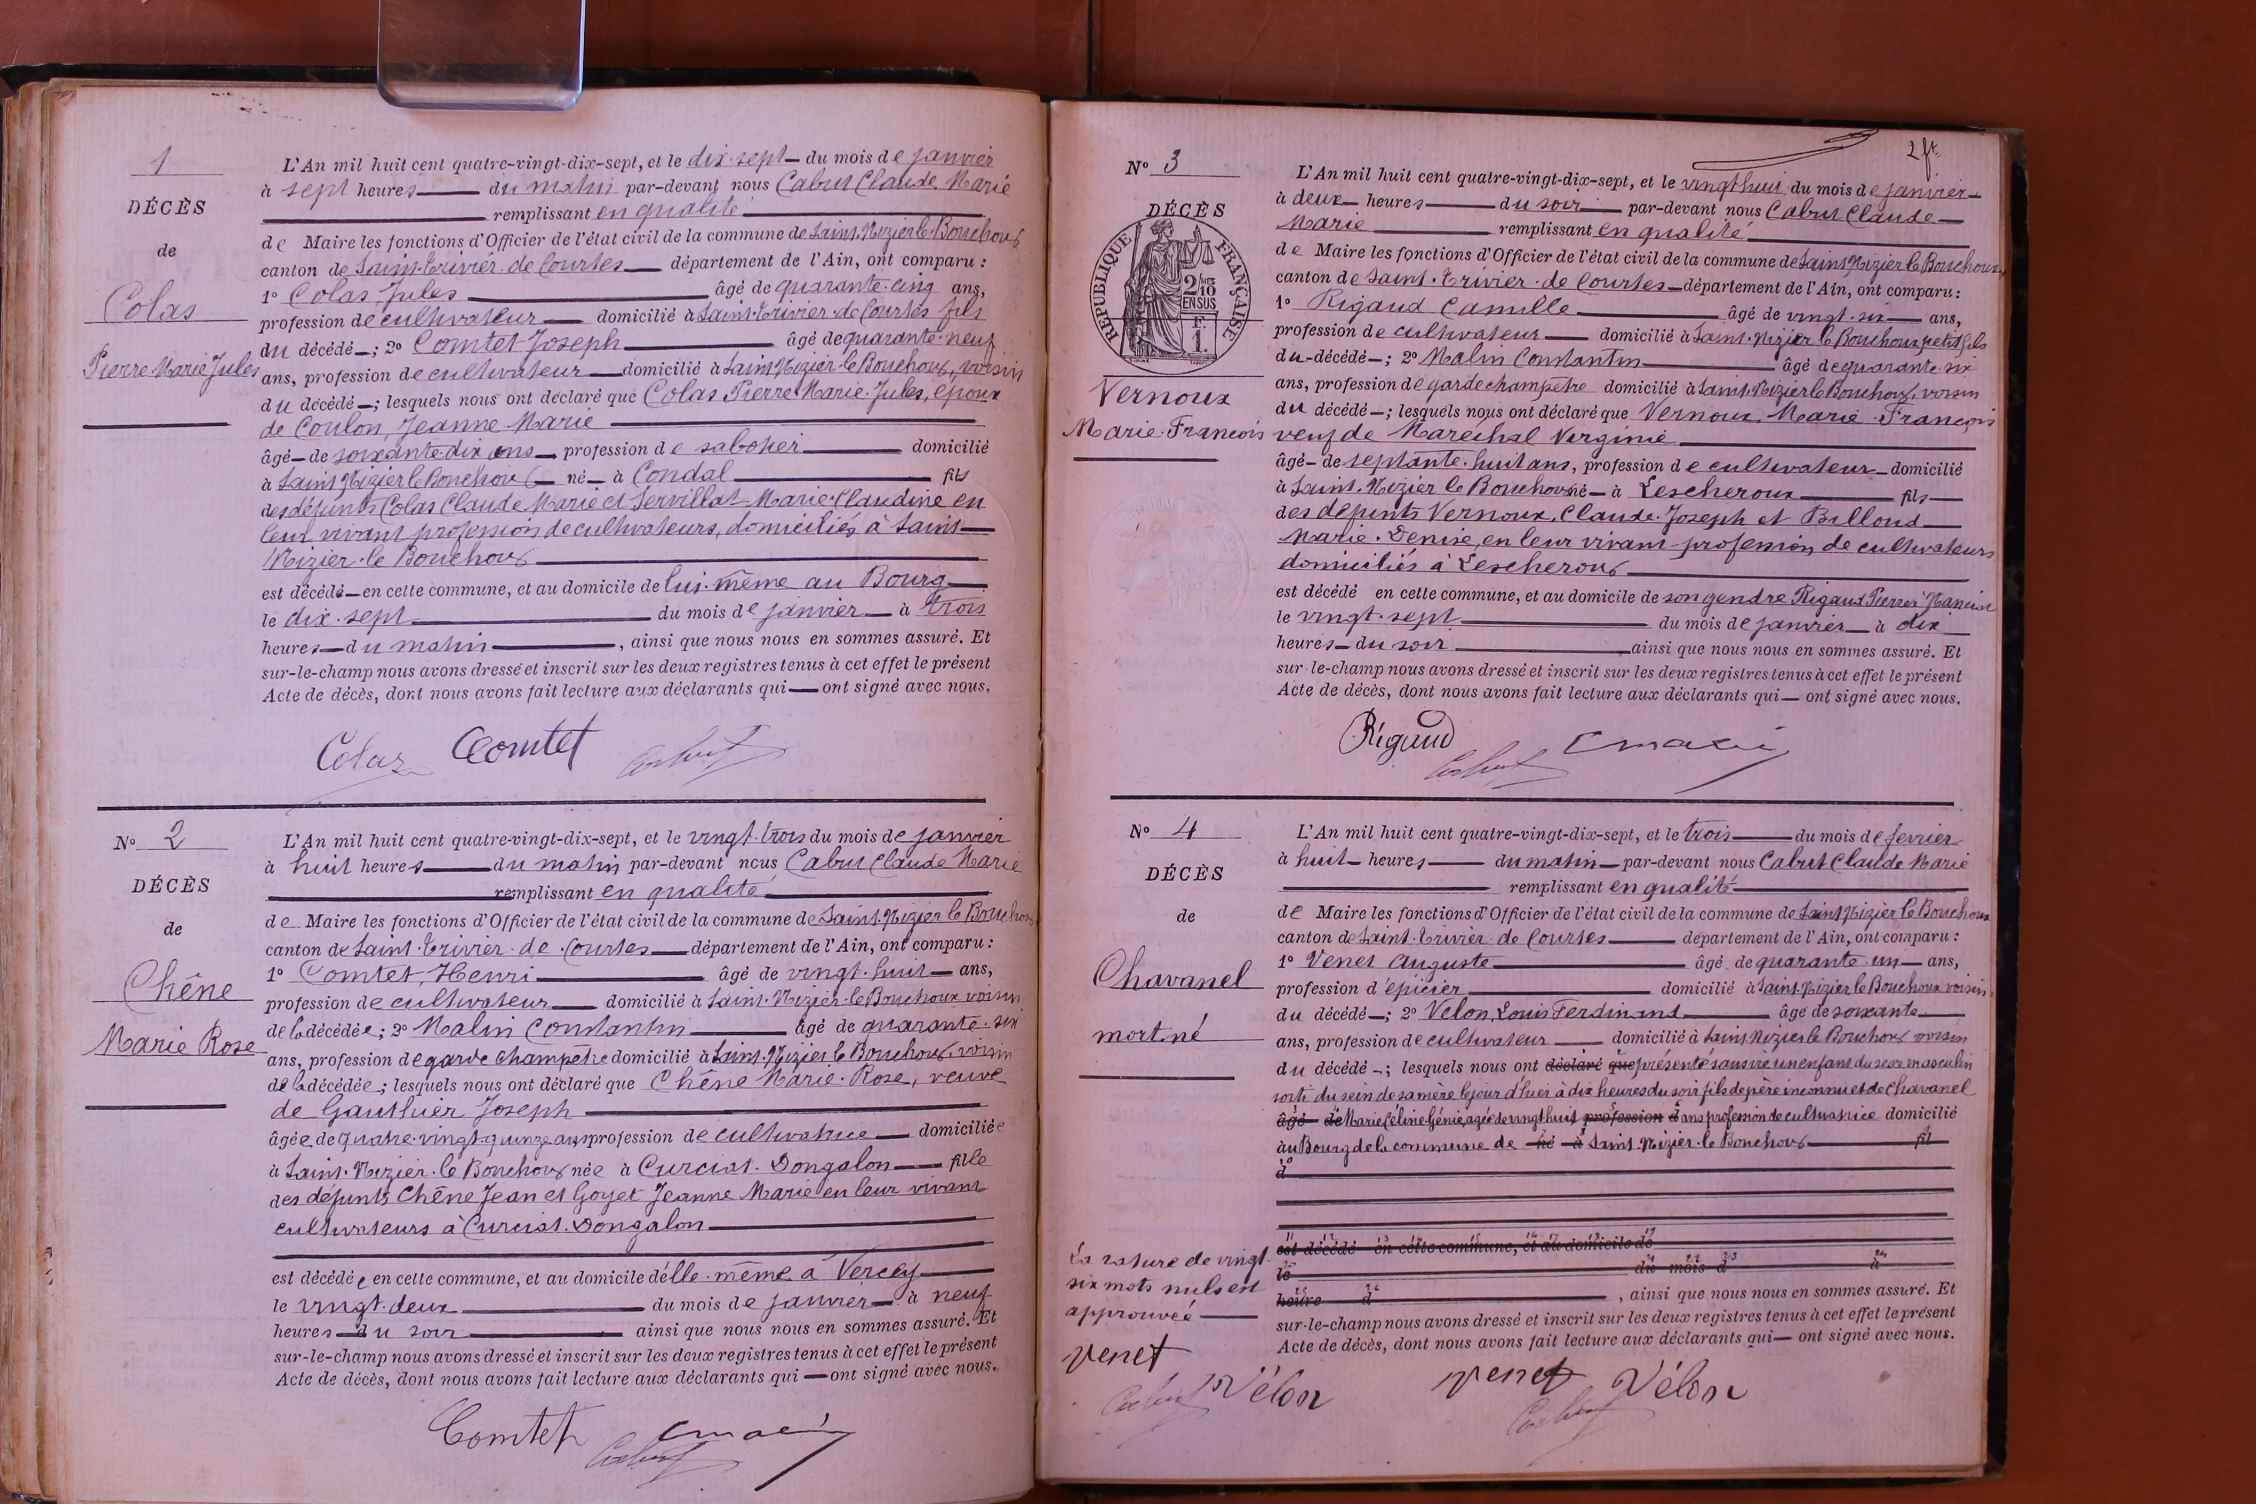 1
DÉCÈS
de
Colas
Pierre Marie Jules
L'An mil huit cent quatre-vingt-dix-sept, et le dix-sept du mois de janvier
à sept heures du matin par-devant nous Cabut Claude Marie
remplissant en qualité
de Maire les fonctions d'Officier de l'état civil de la commune de Saint-Nizier-le-Bouchoux
canton de Saint-Trivier-de-Courtes département de l'Ain, ont comparu :
1º Colas Jules âgé de quarante-cinq ans,
profession de cultivateur domicilié à Saint-Trivier-de-Courtes fils
du décédé ; 2º Comtet Joseph âgé de quarante-neuf
ans, profession de cultivateur domicilié à Saint Nizier-le-Bouchoux, voisin
du décédé ; lesquels nous ont déclaré que Colas Pierre Marie Jules, époux
de Coulon, Jeanne Marie
âgé de soixante-dix ans profession de sabotier domicilié
à Saint Nizier le Bouchoux né à Condal fils
des défunts Colas Claude Marie et Servillat Marie Claudine en
leur vivant profession de cultivateurs, domiciliés à Saint
Nizier-le-Bouchoux
est décédé en cette commune, et au domicile de lui-même au Bourg
le dix-sept du mois de janvier à trois
heures du matin , ainsi que nous nous en sommes assuré. Et
sur-le-champ nous avons dressé et inscrit sur les deux registres tenus à cet effet le présent
Acte de décès, dont nous avons fait lecture aux déclarants qui ont signé avec nous.
Colas Comtet Cabut
Nº 2
DÉCÈS
de
Chêne
Marie Rose
L'An mil huit cent quatre-vingt-dix-sept, et le vingt-trois du mois de janvier
à huit heures du matin par-devant nous Cabut Claude Marie
remplissant en qualité
de Maire les fonctions d'Officier de l'état civil de la commune de Saint-Nizier le Bouchoux
canton de Saint-Trivier-de-Courtes département de l'Ain, ont comparu :
1º Comtet, Henri âgé de vingt-huit ans,
profession de cultivateur domicilié à Saint-Nizier-le-Bouchoux voisin
de la décédée ; 2º Malin Constantin âgé de quarante-six
ans, profession de garde champêtre domicilié à Saint-Nizier le Bouchoux, voisin
de la décédée ; lesquels nous ont déclaré que Chêne Marie-Rose, veuve
de Gauthier Joseph
âgée de quatre-vingt-quinze ans profession de cultivatrice domiciliée
à Saint-Nizier-le-Bouchoux née à Curciat-Dongalon fille
des défunts Chêne Jean et Goyet Jeanne Marie en leur vivant
cultivateurs à Curciat-Dongalon
est décédée en cette commune, et au domicile d'elle-même à Vercey
le vingt-deux du mois de janvier à neuf
heures du soir ainsi que nous nous en sommes assuré. Et
sur-le-champ nous avons dressé et inscrit sur les deux registres tenus à cet effet le présent
Acte de décès, dont nous avons fait lecture aux déclarants qui ont signé avec nous.
Comtet Cmalin
Cabut
2 ft.
Nº 3
DÉCÈS
RÉPUBLIQUE FRANÇAISE
2/10
EN SUS
F.
1.
Vernoux
Marie-François
L'An mil huit cent quatre-vingt-dix-sept, et le vingt huit du mois de janvier
à deux heures du soir par-devant nous Cabut Claude
Marie remplissant en qualité
de Maire les fonctions d'Officier de l'état civil de la commune de Saint Nizier le Bouchoux
canton de Saint-Trivier-de Courtes département de l'Ain, ont comparu :
1º Rigaud Camille âgé de vingt-six ans,
profession de cultivateur domicilié à Saint-Nizier le Bouchoux petit fils
du décédé ; 2º Malin Constantin âgé de quarante-six
ans, profession de garde champêtre domicilié à Saint-Nizier le Bouchoux, voisin
du décédé ; lesquels nous ont déclaré que Vernoux, Marie-François
veuf de Maréchal Virginie
âgé de septante-huit ans, profession de cultivateur domicilié
à Saint-Nizier le Bouchoux né à Lescheroux fils
des défunts Vernoux, Claude-Joseph et Billoud
Marie-Denise, en leur vivant profession de cultivateurs
domiciliés à Lescheroux
est décédé en cette commune, et au domicile de son gendre Rigaud Pierre
le vingt-sept du mois de janvier à dix
heures du soir ainsi que nous nous en sommes assuré. Et
sur-le-champ nous avons dressé et inscrit sur les deux registres tenus à cet effet le présent
Acte de décès, dont nous avons fait lecture aux déclarants qui ont signé avec nous.
Rigaud Cmalin
Cabut
Nº 4
DÉCÈS
de
Chavanel
mort né
L'An mil huit cent quatre-vingt-dix-sept, et le trois du mois de fevrier
à huit heures du matin par-devant nous Cabut Claude Marie
remplissant en qualité
de Maire les fonctions d'Officier de l'état civil de la commune de Saint Nizier le Bouchoux
canton de Saint-Trivier-de Courtes département de l'Ain, ont comparu :
1º Venet Auguste âgé de quarante-un ans,
profession d'épicier domicilié à Saint-Nizier le Bouchoux voisin
du décédé ; 2º Velon, Louis Ferdinand âgé de soixante
ans, profession de cultivateur domicilié à Saint Nizier le Bouchoux voisin
du décédé ; lesquels nous ont déclaré que présenté sans vie un enfant du sexe masculin
sorti du sein de sa mère le jour d'hier à dix heures du soir fils de père inconnu et de Chavanel
âgé de Marie Céline Génie, agée de vingt huit profession d ans profession de cultivatrice domicilié
au Bourg de la commune de né à Saint-Nizier-le Bouchoux fil
d
est décédé en cette commune, et au domicile de
le du mois d à
heure d , ainsi que nous nous en sommes assuré. Et
sur-le-champ nous avons dressé et inscrit sur les deux registres tenus à cet effet le présent
Acte de décès, dont nous avons fait lecture aux déclarants qui ont signé avec nous.
La rature de vingt-
six mots nuls est
approuvée
Venet
Cabut Vélon
Venet Vélon
Cabut